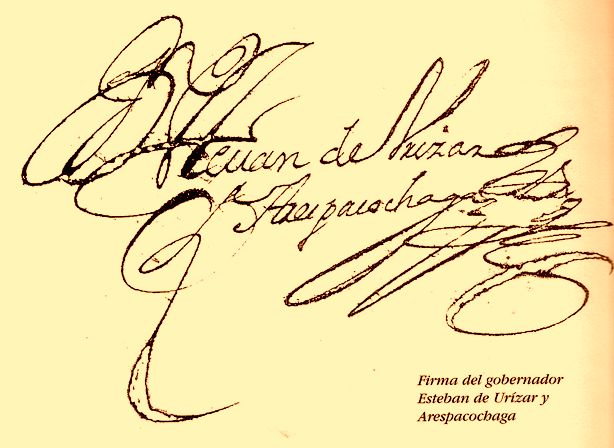 Estevan de Urizar
y Arespacochaga
Firma del gobernador
Esteban de Urízar y
Arespacochaga